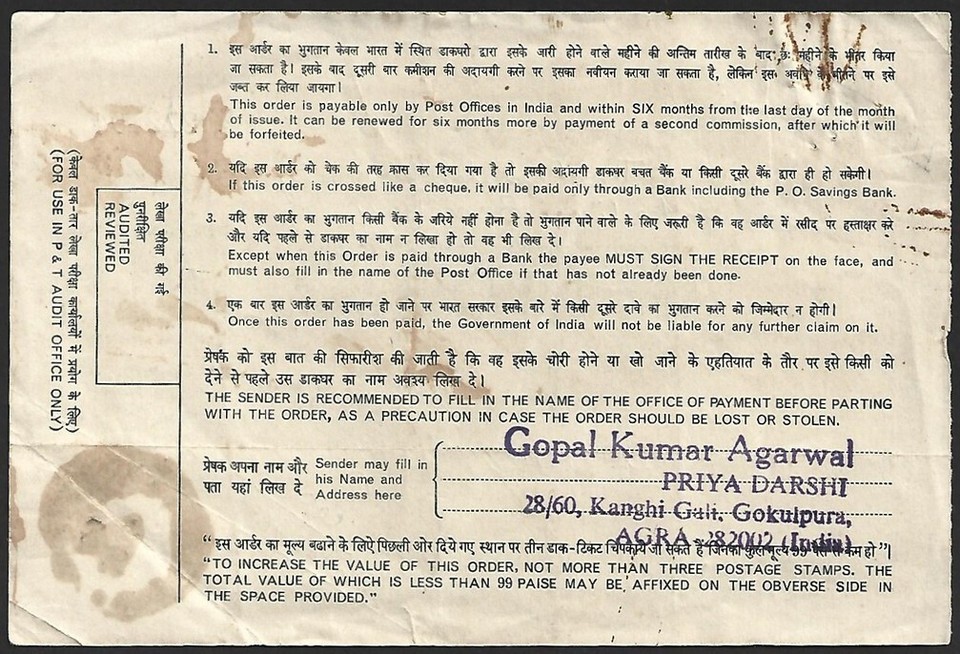 1. इस आर्डर का भुगतान केवल भारत में स्थित डाकघरों द्वारा इसके जारी होने वाले महीने की अन्तिम तारीख के बाद छः महीने के भीतर किया
जा सकता है। इसके बाद दूसरी बार कमीशन की अदायगी करने पर इसका नवीयन कराया जा सकता है, लेकिन इस अवधि के बीतने पर इसे
जब्त कर लिया जायगा।
This order is payable only by Post Offices in India and within SIX months from the last day of the month
of issue. It can be renewed for six months more by payment of a second commission, after which it will
be forfeited.
2. यदि इस आर्डर को चेक की तरह क्रास कर दिया गया है तो इसकी अदायगी डाकघर बचत बैंक या किसी दूसरे बैंक द्वारा ही हो सकेगी।
If this order is crossed like a cheque, it will be paid only through a Bank including the P. O. Savings Bank.
3. यदि इस आर्डर का भुगतान किसी बैंक के जरिये नहीं होना है तो भुगतान पाने वाले के लिए जरूरी है कि वह आर्डर में रसीद पर हस्ताक्षर करे
और यदि पहले से डाकघर का नाम न लिखा हो तो वह भी लिख दे।
Except when this Order is paid through a Bank the payee MUST SIGN THE RECEIPT on the face, and
must also fill in the name of the Post Office if that has not already been done.
4. एक बार इस आर्डर का भुगतान हो जाने पर भारत सरकार इसके बारे में किसी दूसरे दावे का भुगतान करने को जिम्मेदार न होगी।
Once this order has been paid, the Government of India will not be liable for any further claim on it.
प्रेषक को इस बात की सिफारीश की जाती है कि वह इसके चोरी होने या खो जाने के एहतियात के तौर पर इसे किसी को
देने से पहले उस डाकघर का नाम अवश्य लिख दे।
THE SENDER IS RECOMMENDED TO FILL IN THE NAME OF THE OFFICE OF PAYMENT BEFORE PARTING
WITH THE ORDER, AS A PRECAUTION IN CASE THE ORDER SHOULD BE LOST OR STOLEN.
प्रेषक अपना नाम और
पता यहां लिख दे
Sender may fill in
his Name and
Address here
Gopal Kumar Agarwal
PRIYA DARSHI
28/60, Kanghi Gali, Gokulpura,
AGRA-282002 (India)
"इस आर्डर का मूल्य बढाने के लिए पिछली ओर दिये गए स्थान पर तीन डाक-टिकट चिपकाये जा सकते हैं जिनका कुल मूल्य 99 पैसे से कम हो"।
"TO INCREASE THE VALUE OF THIS ORDER, NOT MORE THAN THREE POSTAGE STAMPS. THE
TOTAL VALUE OF WHICH IS LESS THAN 99 PAISE MAY BE AFFIXED ON THE OBVERSE SIDE IN
THE SPACE PROVIDED."
लेखा परीक्षा की गई
पुनरीक्षित
AUDITED
REVIEWED
(केवल डाक-तार लेखा परीक्षा कार्यालयों में प्रयोग के लिए)
(FOR USE IN P & T AUDIT OFFICE ONLY)